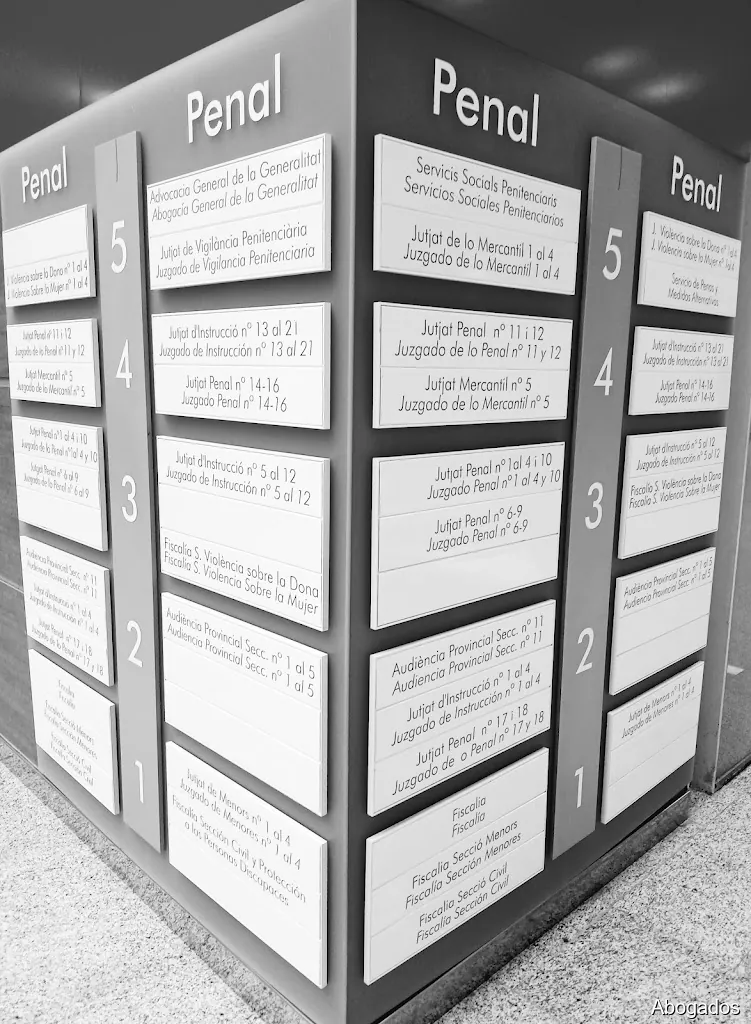 Penal
J. Violència sobre la Dona nº 1 al 4
J. Violencia sobre la Mujer nº 1 al 4
Jutjat Penal nº 11 i 12
Juzgado de lo Penal nº 11 y 12
Jutjat Mercantil nº 5
Juzgado de lo Mercantil nº 5
Jutjat Penal nº1 al 4 i 10
Juzgado de lo Penal nº1 al 4 y 10
Jutjat Penal nº 6 al 9
Juzgado de lo Penal nº 6 al 9
Audiència Provincial Secc. nº 11
Audiencia Provincial Secc. nº 11
Jutjat d'Instrucció nº 1 al 4
Juzgado de Instrucción nº 1 al 4
Jutjat Penal nº 17 i 18
Juzgado de lo Penal nº 17 y 18
Fiscalia
Fiscalía
Fiscalia Secció Menors
Fiscalía Sección Menores
Fiscalia Secció Civil
Fiscalía Sección Civil
5
4
3
2
1
Penal
Advocacia General de la Generalitat
Abogacía General de la Generalitat
Jutjat de Vigilància Penitenciària
Juzgado de Vigilancia Penitenciaria
Jutjat d'Instrucció nº 13 al 21
Juzgado de Instrucción nº 13 al 21
Jutjat Penal nº 14-16
Juzgado Penal nº 14-16
Jutjat d'Instrucció nº 5 al 12
Juzgado de Instrucción nº 5 al 12
Fiscalía S. Violència sobre la Dona
Fiscalía S. Violencia sobre la Mujer
Audiència Provincial Secc. nº 1 al 5
Audiencia Provincial Secc. nº 1 al 5
Jutjat de Menors nº 1 al 4
Juzgado de Menores nº 1 al 4
Fiscalía Sección Civil y Protección
a las Personas Discapaces
Penal
Servicis Socials Penitenciaris
Servicios Sociales Penitenciarios
Jutjat de lo Mercantil 1 al 4
Juzgado de lo Mercantil 1 al 4
Jutjat Penal nº 11 i 12
Juzgado de lo Penal nº 11 y 12
Jutjat Mercantil nº 5
Juzgado de lo Mercantil nº 5
Jutjat Penal nº1al 4 i 10
Juzgado Penal nº1 al 4 y 10
Jutjat Penal nº 6-9
Juzgado Penal nº 6-9
Audiència Provincial Secc. nº 11
Audiencia Provincial Secc. nº 11
Jutjat d'Instrucció nº 1 al 4
Juzgado de Instrucción nº 1 al 4
Jutjat Penal nº 17 i 18
Juzgado de o Penal nº 17 y 18
Fiscalia
Fiscalía
Fiscalia Secció Menors
Fiscalía Sección Menores
Fiscalia Secció Civil
Fiscalía Sección Civil
5
4
3
2
1
Penal
J. Violència sobre la Dona nº 1 al 4
J. Violencia sobre la Mujer nº 1 al 4
Servicio de Penas y
Medidas Alternativas
Jutjat d'Instrucció nº 13 al 21
Juzgado de Instrucción nº 13 al 21
Jutjat Penal nº 14-16
Juzgado Penal nº 14-16
Jutjat d'Instrucció nº 5 al 12
Juzgado de Instrucción nº 5 al 12
Fiscalía S. Violència sobre la Dona
Fiscalía S. Violencia sobre la Mujer
Audiència Provincial Secc. nº 1 al 5
Audiencia Provincial Secc. nº 1 al 5
Jutjat de Menors nº 1 al 4
Juzgado de Menores nº 1 al 4
Abogados